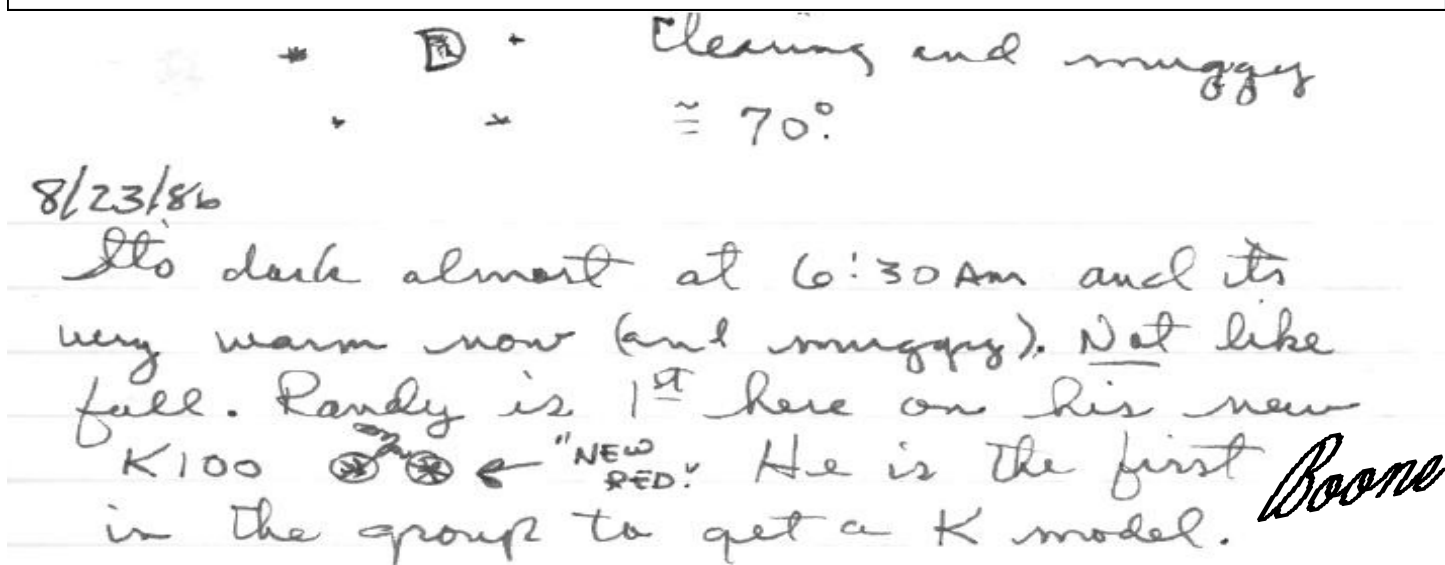 Clearing and muggy
≅ 70°.
8/23/86
Its dark almost at 6:30 AM and its
very warm now (and muggy). Not like
fall. Randy is 1st here on his new
K100 ← "NEW RED". He is the first
in the group to get a K model.
Boone